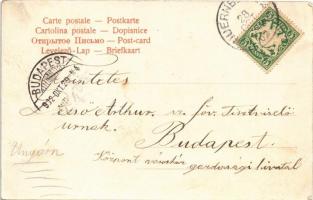 Carte postale — Postkarte
Cartolina postale — Dopisnice
Открытое Письмо — Post-card
Levelező-Lap — Briefkaart
BUDAPEST
Tekintetes
Dezső Arthur
urnak.
Budapest
Ungarn
Központi városház
gazdasági hivatal